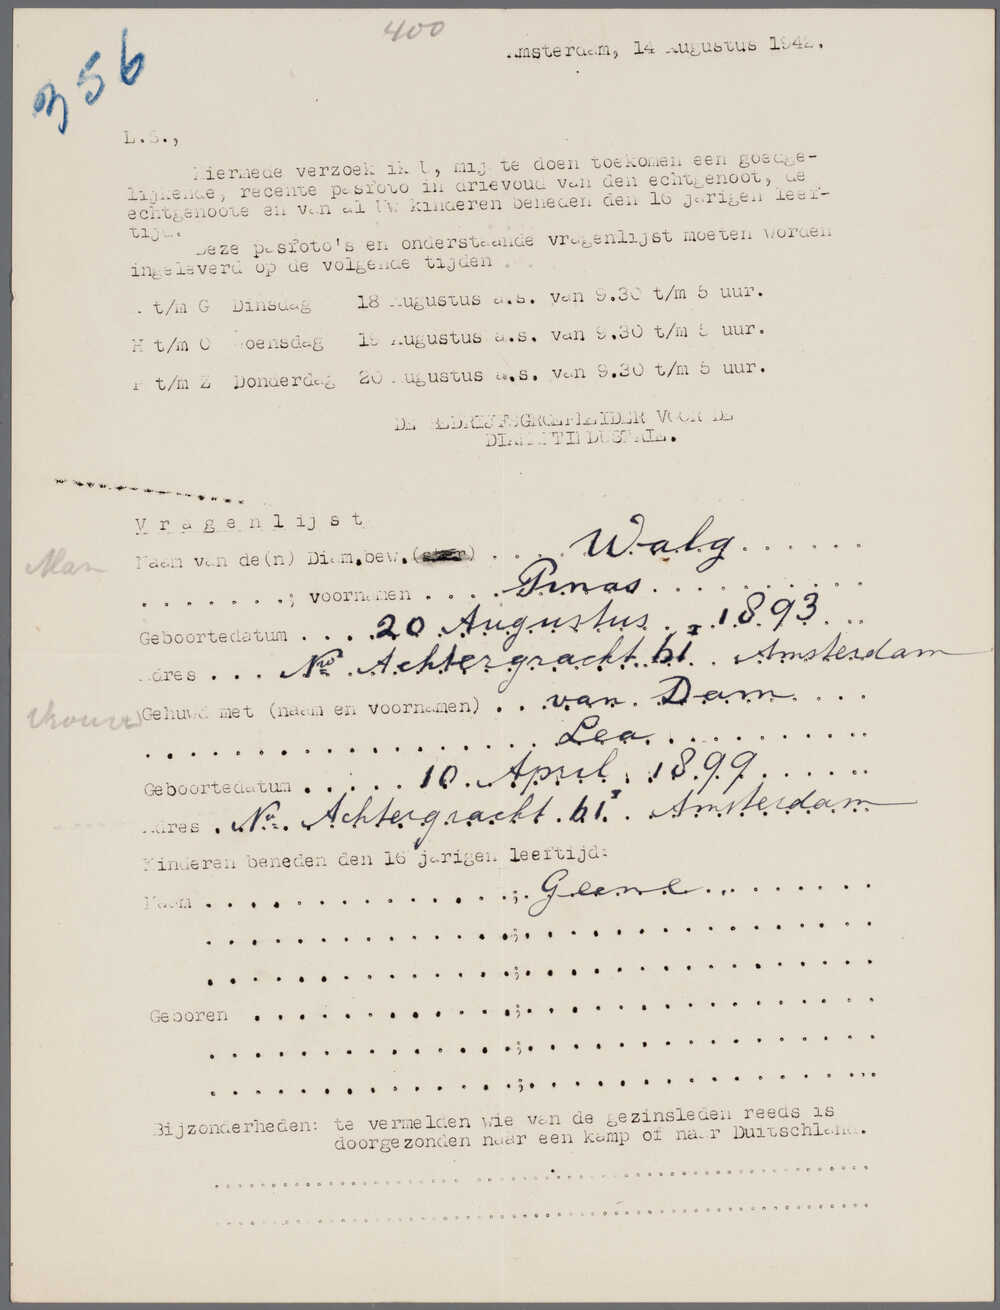 400
356
Amsterdam, 14 Augustus 1942.
L.S.,
Hiermede verzoek ik U, mij te doen toekomen een goedge-
lijkende, recente pasfoto in drievoud van den echtgenoot, de
echtgenoote en van al Uw kinderen beneden den 16 jarigen leef-
tijd.
Deze pasfoto's en onderstaande vragenlijst moeten worden
ingeleverd op de volgende tijden
A t/m G Dinsdag 18 Augustus a.s. van 9.30 t/m 5 uur.
H t/m O Woensdag 19 Augustus a.s. van 9.30 t/m 5 uur.
P t/m Z Donderdag 20 Augustus a.s. van 9.30 t/m 5 uur.
DE BEDRIJFSGROEPLEIDER VOOR DE
DIAMANTINDUSTRIE.
Vragenlijst
Man Naam van de(n) Diam.bew.(ster) .... Walg ......
.......; voornamen .... Pinas .........
Geboortedatum .... 20 Augustus 1893 ..
Adres ... Nwe Achtergracht 61 I Amsterdam
Vrouw Gehuwd met (naam en voornamen) .. van Dam ...
Lea
Geboortedatum ..... 10 April 1899 ......
Adres . Nwe Achtergracht 61 I Amsterdam
Kinderen beneden den 16 jarigen leeftijd:
Naam ...............; Geene ........
Geboren ...............;...............
Bijzonderheden: te vermelden wie van de gezinsleden reeds is
doorgezonden naar een kamp of naar Duitschland.